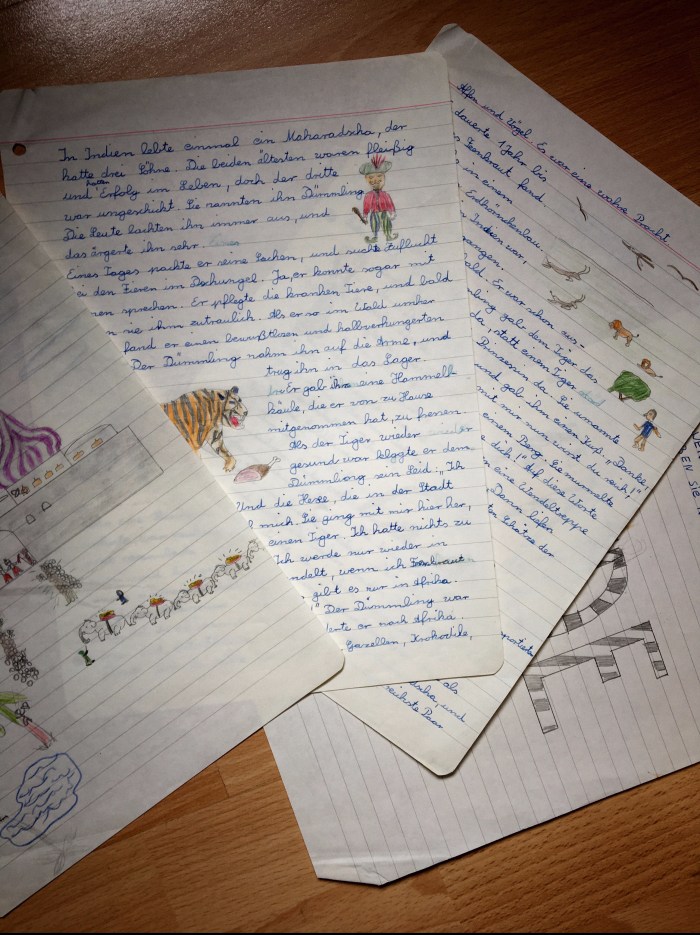 In Indien lebte einmal ein Maharadscha, der
hatte drei Söhne. Die beiden ältesten waren fleißig
und hatten Erfolg im Leben, doch der dritte
war ungeschickt. Sie nannten ihn Dümmling
Die Leute lachten ihn immer aus, und
das ärgerte ihn sehr.
Eines Tages packte er seine Sachen, und suchte Zuflucht
bei den Tieren im Dschungel. Ja, er konnte sogar mit
sprechen. Er pflegte die kranken Tiere, und bald
sie ihm zutraulich. Als er so im Wald umher
fand er einen bewußtlosen und halbverhungerten
Der Dümmling nahm ihn auf die Arme, und
trug ihn in das Lager.
Er gab ihm eine Hammelk
käule, die er von zu Hause
mitgenommen hat, zu fressen.
Als der Tiger wieder
gesund war klagte er dem
Dümmling sein Leid: „Ich
Und die Hexe, die in der Stadt
mich. Sie ging mit mir hier her,
einen Tiger. Ich hatte nichts zu
Ich werde nur wieder in
ndelt, wenn ich Feenkraut
gibt es nur in Afrika.
" Der Dümmling war
erte er nach Afrika.
Gazellen, Krokodile,
Affen und Vögel. Es war eine wahre Pracht
dauerte 1 Jahr bis
Feenkraut fand
in einem
Erdhörnchenbau.
Indien war,
angen.
ald. Er war schon aus-
ling gab dem Tiger das
da, statt einem Tiger
Prinzessin da. Sie umarmte
und gab ihm einen Kuß. „Danke,
mit mir nur wirst du reich!"
einem Berg. Er murmelte
e dich!" Auf diese Worte
eine Wendeltreppe
Dann liefen
Schätze der
als
dscha, und
reichste Paar
DE